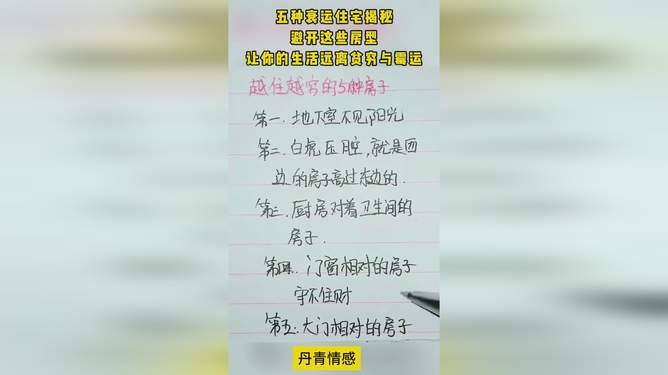 五种衰运住宅揭秘
避开这些房型
让你的生活远离贫穷与霉运
越住越穷的5种房子
第一.地下室不见阳光
第二.白虎压腔,就是西
边的房子高过东边的.
第三.厨房对着卫生间的
房子.
第四.门窗相对的房子
守不住财
第五:大门相对的房子
丹青情感